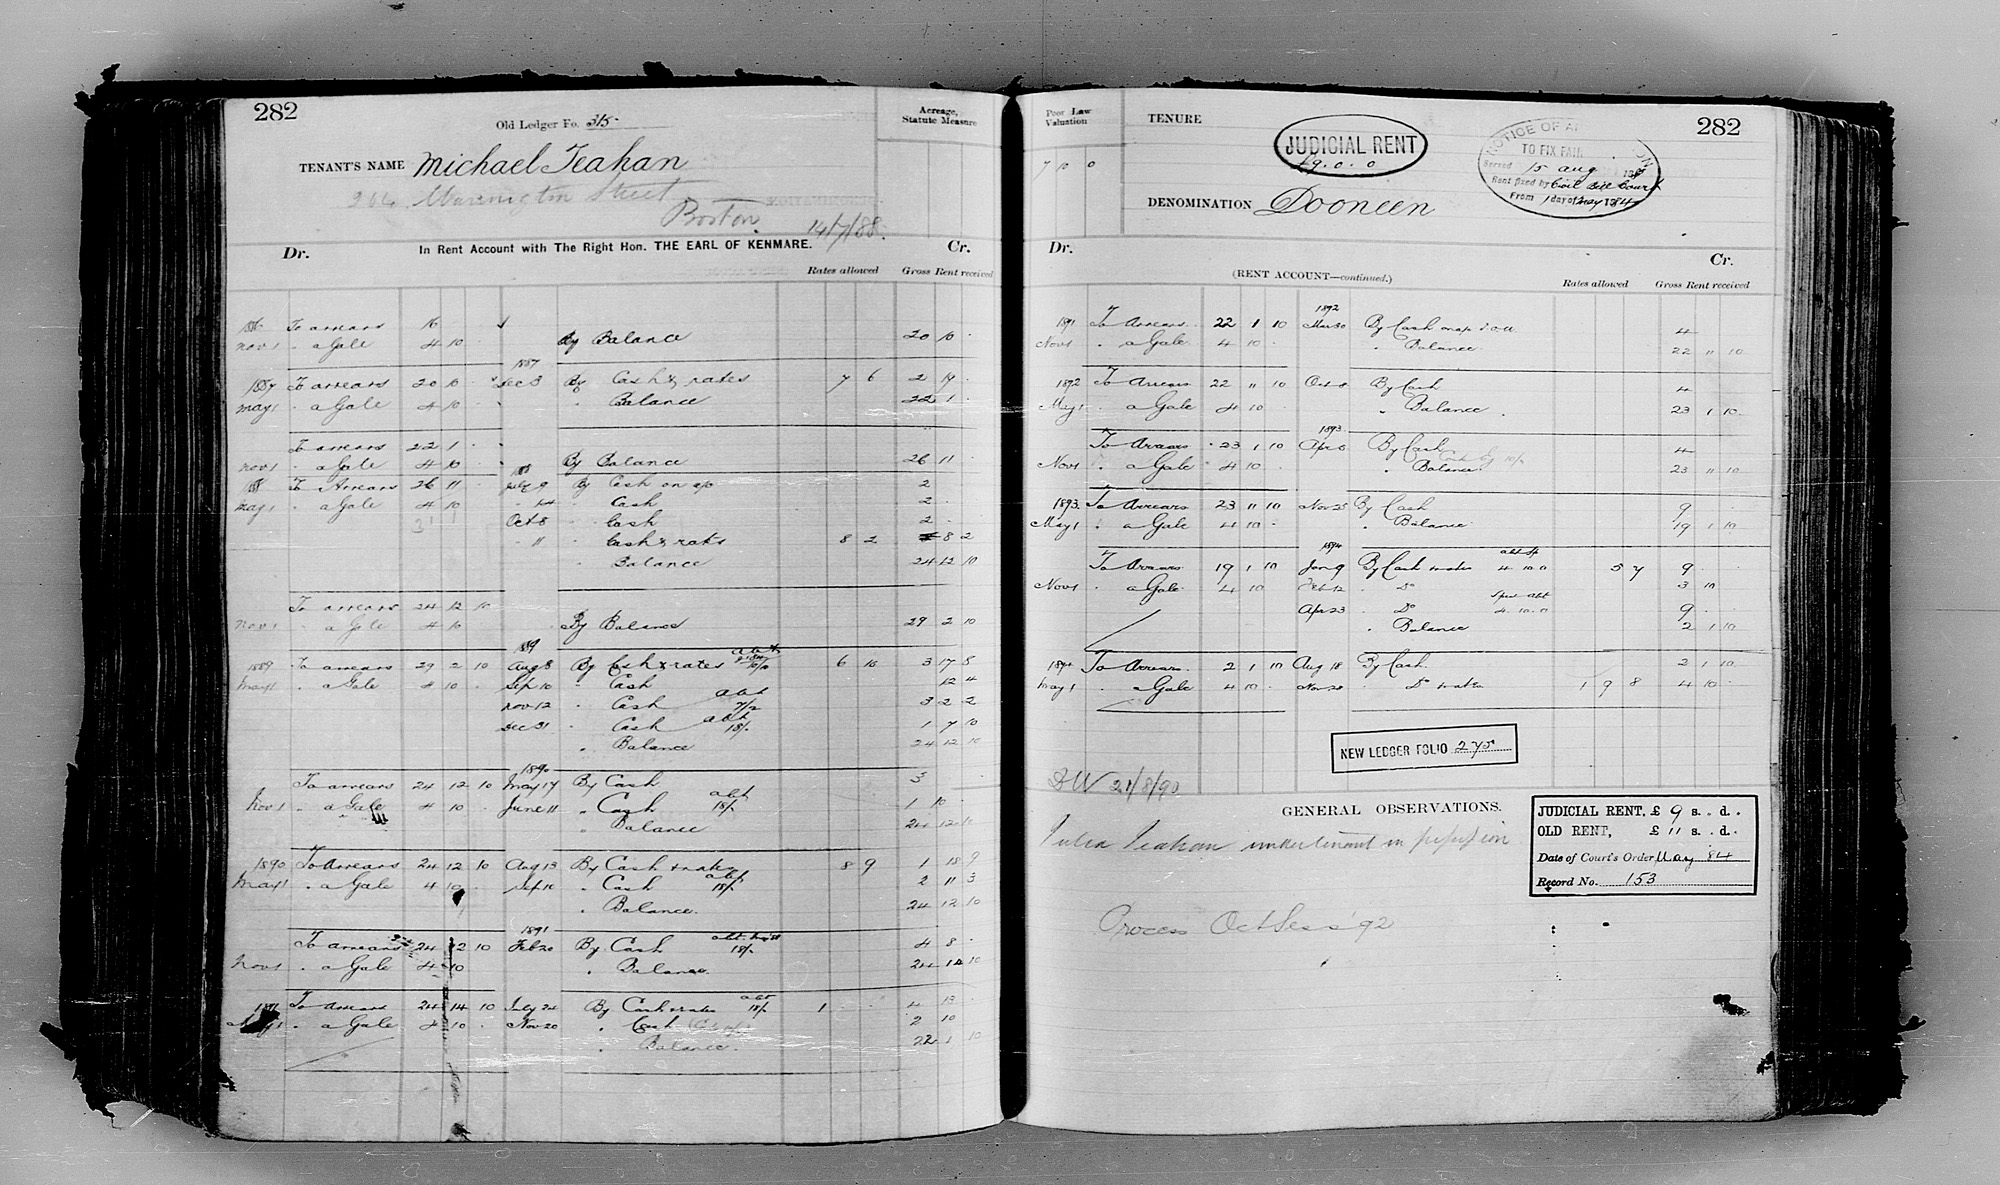 282
Old Ledger Fo. 315
Acreage, Statute Measure
TENANT'S NAME Michael Teahan
Street
Boston. 14/7/88.
Dr. In Rent Account with The Right Hon. THE EARL OF KENMARE. Cr.
Rates allowed Gross Rent received
1886 To arrears 16 . .
Nov 1 " a Gale 4 10 . By Balance 20 10 .
1887
1887 To arrears 20 10 . Dec 3 By Cash & rates 7 6 2 19 .
May 1 " a Gale 4 10 . " Balance 22 1 .
To arrears 22 1 .
Nov 1 " a Gale 4 10 . By Balance 26 11 .
1888
1888 To Arrears 26 11 . July 9 By Cash on a/c 2
May 1 " a Gale 4 10 . " 14 " Cash 2
Oct 8 " Cash 2
" 11 " Cash & rates 8 2 8 2
" Balance 24 12 10
To arrears 24 12 10
Nov 1 " a Gale 4 10 By Balance 29 2 10
1889
1889 To arrears 29 2 10 Aug 8 By Cash & rates 6 10 3 17 8
May 1 " a Gale 4 10 . Sep 10 " Cash 12 4
Nov 12 " Cash abt 7/2 3 2 2
Dec 31 " Cash abt 18/. 1 7 10
" Balance 24 12 10
1890
To arrears 24 12 10 May 17 By Cash 3
Nov 1 " a Gale 4 10 . June 11 " Cash abt 18/. 1 10 .
" Balance 24 12 10
1890 To Arrears 24 12 10 Aug 13 By Cash & rates 8 9 1 18 9
May 1 " a Gale 4 10 Sep 10 " Cash abt 18/. 2 11 3
" Balance. 24 12 10
1891
To arrears 24 12 10 Feb 20 By Cash 18/. 4 8 .
Nov 1 " a Gale 4 10 " Balance. 24 14 10
1891 To arrears 24 14 10 July 24 By Cash & rates abt 18/. 1 4 13
May 1 " a Gale 4 10 . Nov 20 " Cash 2 10
" Balance. 22 1 10
Poor Law Valuation
7 10 0
TENURE
JUDICIAL RENT
£9.0.0
NOTICE OF
TO FIX FAIR
Served 15 Aug
Rent fixed by Civil Bill Court
From 1 day of May 1884
282
DENOMINATION Dooneen
Dr. (RENT ACCOUNT—continued.) Cr.
Rates allowed Gross Rent received
1892
1891 To Arrears. 22 1 10 Mar 30 By Cash 4
Nov 1 " a Gale 4 10 . " Balance. 22 11 10
1892 To Arrears 22 11 10 Oct 8 By Cash 4
May 1 " a Gale 4 10 " Balance. 23 1 10
1893
To Arrears 23 1 10 Apr 6 By Cash 4
Nov 1 " a Gale 4 10 " Balance 23 11 10
1893 To Arrears 23 11 10 Nov 25 By Cash 9
May 1 " a Gale 4 10 . " Balance. 19 1 10
1894
To Arrears 19 1 10 Jan 9 By Cash & rates 4 10 0 5 7 9 . .
Nov 1 " a Gale 4 10 Feb 12 " Do 3 10
Apr 23 " Do 4.10.0 9 . .
" Balance 2 1 10
1894 To Arrears. 2 1 10 Aug 18 By Cash. 2 1 10
May 1 " a Gale 4 10 . Nov 28 " Do & rates 1 9 8 4 10 .
NEW LEDGER FOLIO 275
21/8/90
GENERAL OBSERVATIONS.
Julia Teahan undertenant in possession
Process Oct Sess '92
JUDICIAL RENT, £ 9 s. . d. .
OLD RENT, £ 11 s. . d. .
Date of Court's Order May 84
Record No. 153